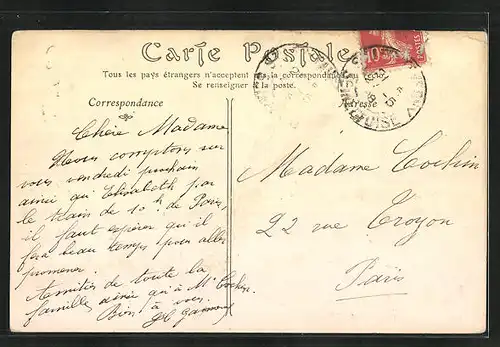 Carte Postale
Tous les pays étrangers n'acceptent pas la correspondance au
Se renseigner à la poste.
Correspondance
Adresse
Chère Madame
Nous comptons sur
vous vendredi prochain
ainsi qu'Elisabeth par
le train de 10 h de Paris,
il faut espérer qu'il
fera beau temps pour aller
promener.
Amitiés de toute la
famille ainsi qu'à Mr Cochin
Bien à vous.
Madame Cochin
22 rue Troyon
Paris
10
POSTES
OISE